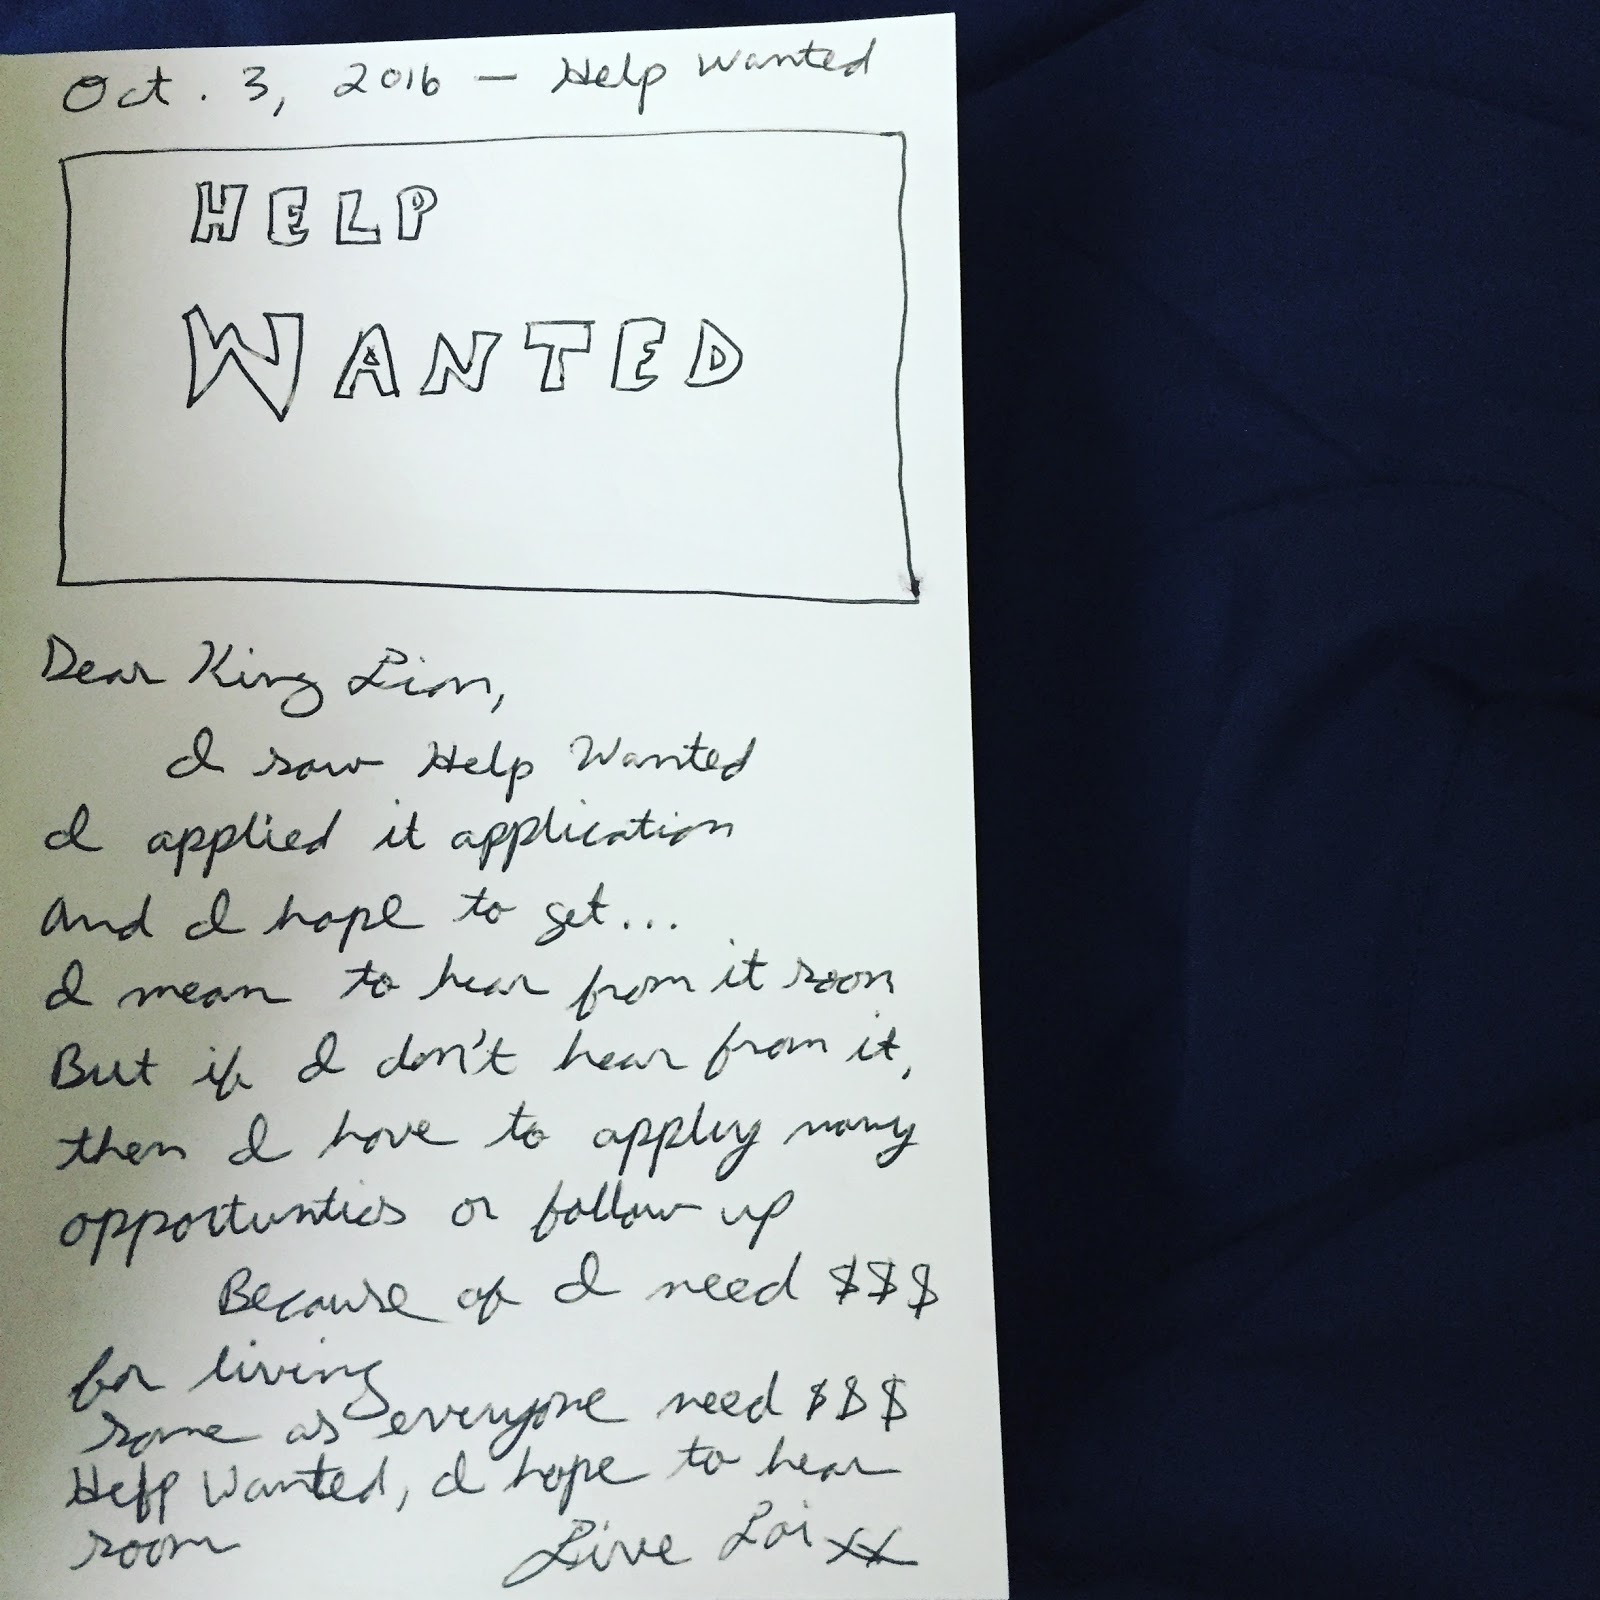 Oct. 3, 2016 — Help Wanted
HELP
WANTED
Dear King Lion,
I saw Help Wanted
I applied it application
And I hope to get...
I mean to hear from it soon
But if I don't hear from it,
then I have to apply many
opportunities or follow up
Because of I need $$$
for living
same as everyone need $$$
Help Wanted, I hope to hear
soon Live Loi xx